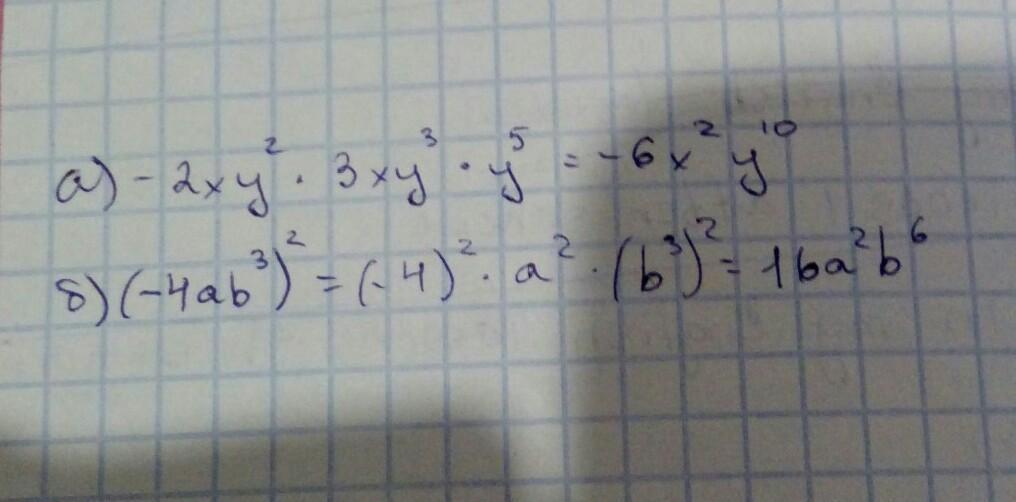 а) -2xy² · 3xy³ · y⁵ = -6x²y¹⁰
б) (-4ab³)² = (-4)² · a² · (b³)² = 16a²b⁶